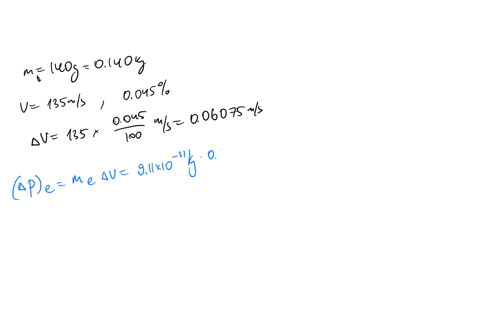 m = 140g = 0.140kg
V = 135 m/s , 0.045%
ΔV = 135 × 0.045/100 m/s = 0.06075 m/s
(Δp)e = me ΔV = 9.11×10^-31 kg · 0.